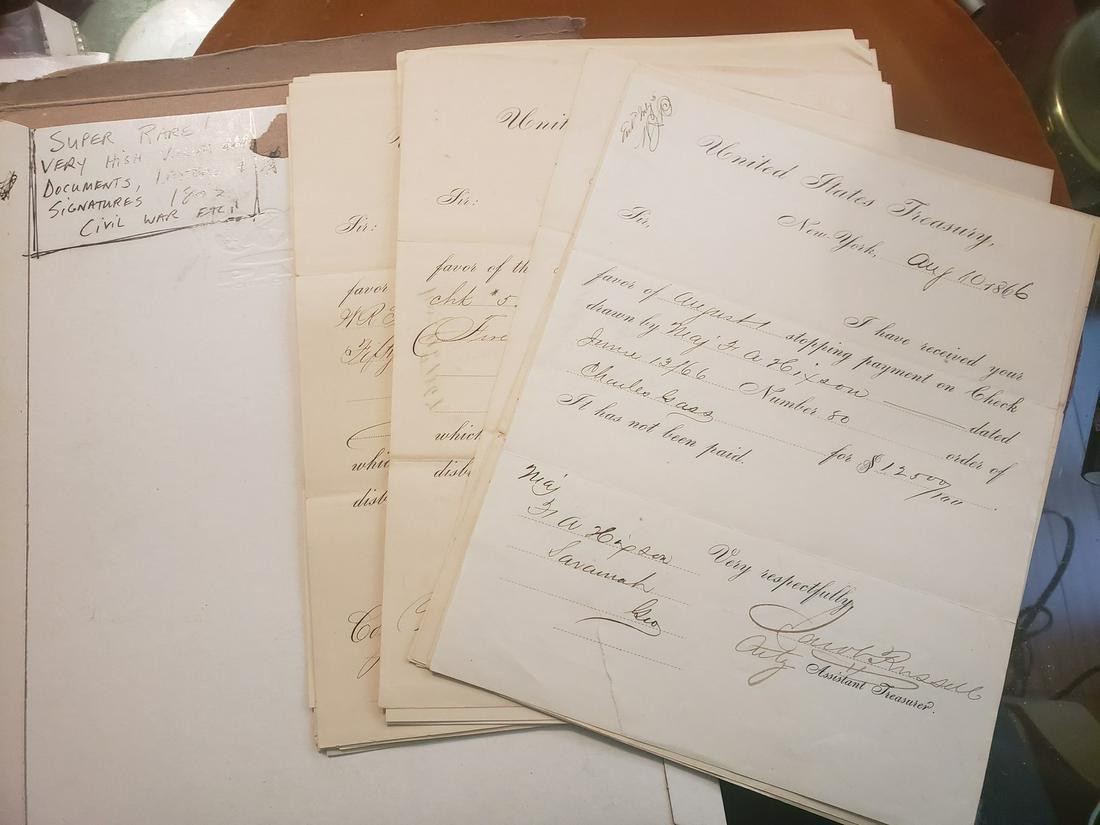 SUPER RARE!
VERY HIGH
DOCUMENTS,
SIGNATURES
CIVIL WAR ETC!!
Sir:
favor
Fifty
which
disb
Unit
Sir:
favor of th
chk #5
Five
which
disb
United States Treasury,
New-York, Aug 10 1866
Sir,
I have received your
favor of August 1 stopping payment on Check
drawn by Maj F A Hixson dated
June 13/66 Number 80 order of
Charles Gass for $12500/100
It has not been paid.
Maj
F A Hixson
Savannah
Geo
Very respectfully,
Russell
Assistant Treasurer.